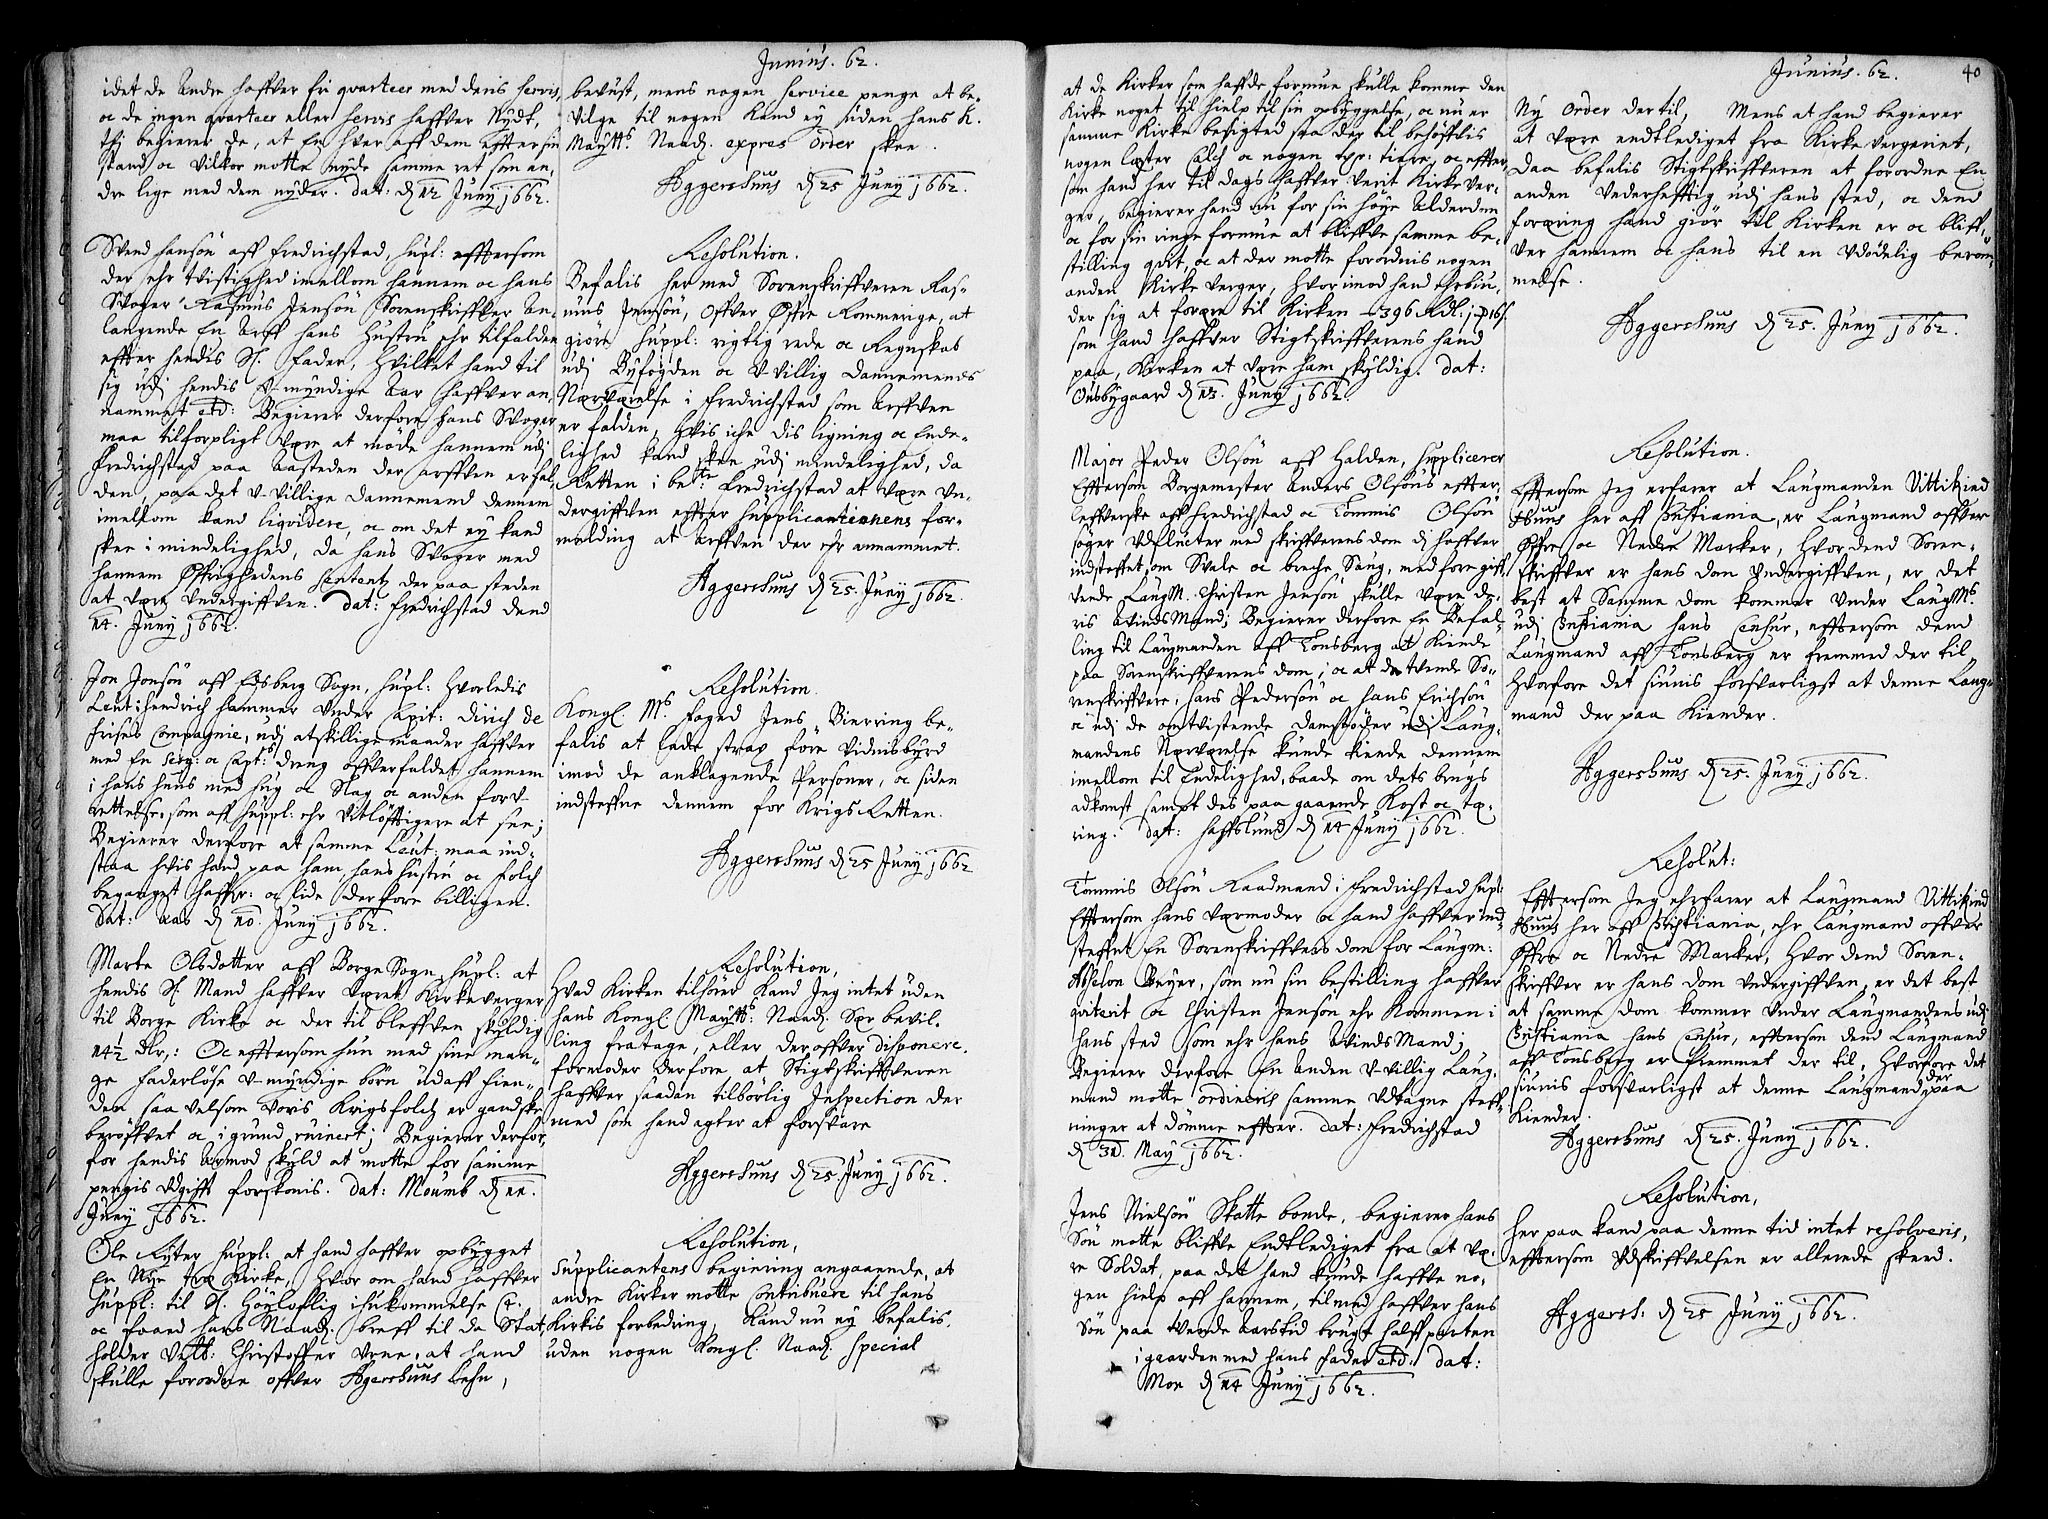 Junius. 62.
idet de andre haffver fri qvarteer med deris servis,
oc de ingen qvarteer eller servis haffver Nydt,
thj begierer de, at En hver aff dem effter sin
stand oc vilkor motte nyde samme ret som an,
dre lige med dem nyder. dat: d 12 Junij 1662.
Svend hansön aff Fredrichstad, supl: effttersom
der ehr tvistighed imellom hannem oc hans
Svoger Rasmus Jensön Sorenskriffver an,
langende En arff hans Hustru ehr tilfalden
effter hendis Sl. Fader, Hvilket hand til
sig udj hendis u-myndige aar haffver an,
nammet etc: Begierer derfore hans Svoger
maa tilforpligt være at møde hannem udi
Fredrichstad paa aasteden der arffven er fal,
den, paa det u-villige dannemend dennem
imellom kand liqvidere, oc om det ey kand
skee i mindelighed, da hans Svoger med
hannem Øffrighedens sententz der paa steden
at være undergiffven. dat: Fredrichstad dend
14. Junij 1662.
Jon Jonsön aff Edsberg Sogn, supl: hvorledis
Leut: hendrich hammer under Capit: Dirich de
hrises Compagnie, udj atskillige maader haffver
med En serg: oc Capt:s dreng offverfaldet hannem
i hans huus med hug oc slag oc anden forv
rettelse, som aff suppl: ehr vitløfftigere at see;
Begierer derfore at samme Leut: maa ind,
staa hvis hand paa ham, hans hustru oc folch
begaaget haffver: oc lide derfore billigen.
dat: aas d 10. Junij 1662.
Marte Olsdotter aff Borge Sogn, supl: at
hendis Sl. Mand haffver været Kirkeverger
til Borge Kirke oc der til bleffven skyldig
14½ dlr,: Oc effttersom hun med sine man,
ge faderløse u-myndige börn udaff fien,
den saa velsom voris Krigsfolch er gandske
beröffvet oc i grund ruinert; Begierer derfor,
for hendis armod skuld at motte for samme
pengis udgifft forskonis. dat: Moumb d 11.
Junij 1662.
Ole Ryter suppl: at hand haffver opbygget
En Nye Træ Kirke, hvor om hand haffver
suppl: til Sl. Höyloflig ihukommelse C 4.
oc faaed hans Naad. breff til da Stat,
holder Velb: Christoffer Urne, at hand
skulle forordne offver Agershuus Lehn,
bevust, mens nogen Service penge at be,
vilge til nogen kand ey uden hans K.
Maytts. Naad. expres order skee.
Aggershuus d 25 Junij 1662.
Resolution.
Befalis her med Sorenskriffveren Ras,
mus Jensön, offver Øffre Rommerige, at
giöre suppl: rigtig rede oc Regnskab
udj Byfogden oc u-villig Dannemends
Nærværelse i Fredrichstad som arffven
er falden, hvis iche dis ligning oc Ende,
lighed kand skee udj mindelighed, da
Retten i bete. Fredrichstad at være un,
dergiffven effter supplicantiennens for,
melding at arffven der ehr annammet.
Aggershuus d 25 Junij 1662.
Resolution.
Kongl. Ms. Foged Jens Bierring be,
falis at lade strax före vidnisbyrd
imod de anklagende Personer, oc siden
indsteffne dennem for Krigs Retten.
Aggershuus d 25 Junij 1662
Resolution,
Hvad Kirken tilhörer kand Jeg intet uden
hans Kongl. Maytts: Naad. Sær bevil,
ling fratage, eller der offver disponere.
formoder derfore, at Stigtskriffveren
haffver saadan tilbörlig Inspection der
med som hand agter at forsvare
Aggershuus d 25 Junij 1662.
Resolution,
Supplicantens begiering angaaende, at
andre Kirker motte Contribuere til hans
Kirkis forbedring, kand nu ey befalis.
uden nogen Kongl. Naad. Special
Junius. 62.
40
at de Kirker som haffde formue skulle komme den
Kirke noget til hielp til sin opbyggelse, oc nu er
samme Kirke besigted saa der til behöffvis
nogen læster Calch oc nogen tiære, oc effter,
som hand her til dags haffver verit Kirkever,
ger, begierer hand nu for sin höye Alderdom
oc for sin ringe formue at bliffve samme be,
stilling qvit, oc at der motte forordnis nogen
anden Kirkeverger, hvorimod hand ehrbiu,
der sig at forære til Kirken 396 Rdl: 1 16 s.
som hand haffver Stigtskriffverens hand
paa, Kirken at være ham skyldig. dat:
Ousbygaard d 13. Junij 1662.
Major Peder Olsön aff Halden, Supplicerer
Effttersom Borgemester Anders Olsöns effter,
leffverske aff Fredrichstad oc Tommis Olsön
söger udflucter med skriffverens dom d haffver
indsteffnet, om Svale oc breche Seng, med foregiff
vende LaugM. Christen Jensön skulle være de,
ris avindsMand; Begierer derfore En Befal,
ling til Laugmanden aff Tonsberg at Kiende
paa Sorenskriffverens dom; oc at de tvende So,
renskriffvere, hans Pedersön oc hans Erichsön
oc udj de omtvistende udj Laug,
mandens Nærværelse kunde kiende dennem
imellom til Endelighed, baade om dets brugs
adkomst sampt des paa gaaende Kost oc tæ,
ring. dat: hafflund d 14 Junij 1662.
Tommis Olsön Raadmand i Fredrichstad supl:
Effttersom hans værmoder oc hand haffver ind,
steffnet En Sorenskriffvers dom for Laugm:
Absolon Beyer, som nu sin bestilling haffver
qviterit oc Christen Jensön ehr kommen i
hans sted som ehr hans avindsMand;
Begierer derfore En anden u-villig Laug,
mand motte ordineris samme udtagne steff,
ninger at dömme effter. dat: Fredrichstad
d 31. May 1662.
Jens Nielsön Skatte bonde, begierer hans
Sön motte bliffve Entlediget fra at væ,
re Soldat, paa det hand kunde haffve no,
gen hielp aff hannem, tilmed haffver hans
Sön paa tvende aarstid brugt halffparten
i gaarden med hans fader etc: dat:
Mon d 14 Junij 1662.
Ny order dertil, Mens at hand begierer
at være endtlediget fra Kirkevergeriet,
Daa befalis Stigtskriffveren at forordne En
anden Vederhefftig udj hans sted, oc dend
foræring hand giör til Kirken er oc bliff,
ver hannem oc hans til en Udödelig beröm,
melse.
Aggershuus d 25. Junij 1662.
Resolution.
Effttersom Jeg erfarer at Laugmanden Vittikind
Huus her aff Christiania, er Laugmand offver
Öffre oc Nedre Marker, Hvor dend Soren,
skriffver er hans dom undergiffven, er det
best at Samme dom kommer under LaugMs.
udj Christiania hans Censur, effttersom dend
Laugmand aff Tonsberg er fremmed der til,
Hvorfore det siunis forsvarligst at denne Laug,
mand der paa Kiender.
Aggershuus d 25. Junij 1662.
Resolut:
Effttersom Jeg ehrfarer at Laugmand Vittikind
Huus her aff Christiania, ehr Laugmand offver
Öffre oc Nedre Marker, Hvor dend Soren,
skriffver er hans dom undergiffven, er det best
at samme dom kommer under Laugmandens udj
Christiania hans Censur, effttersom dend Laugmand
aff Tonsberg er fremmet der til, Hvorfore det
siunis forsvarligst at denne Laugmand der paa
Kiender.
Aggershuus d 25. Junij 1662.
Resolution,
her paa kand paa denne tid intet resolveris,
effttersom Udskriffvelsen er allerede skeed.
Aggersh: d 25 Junij 1662.